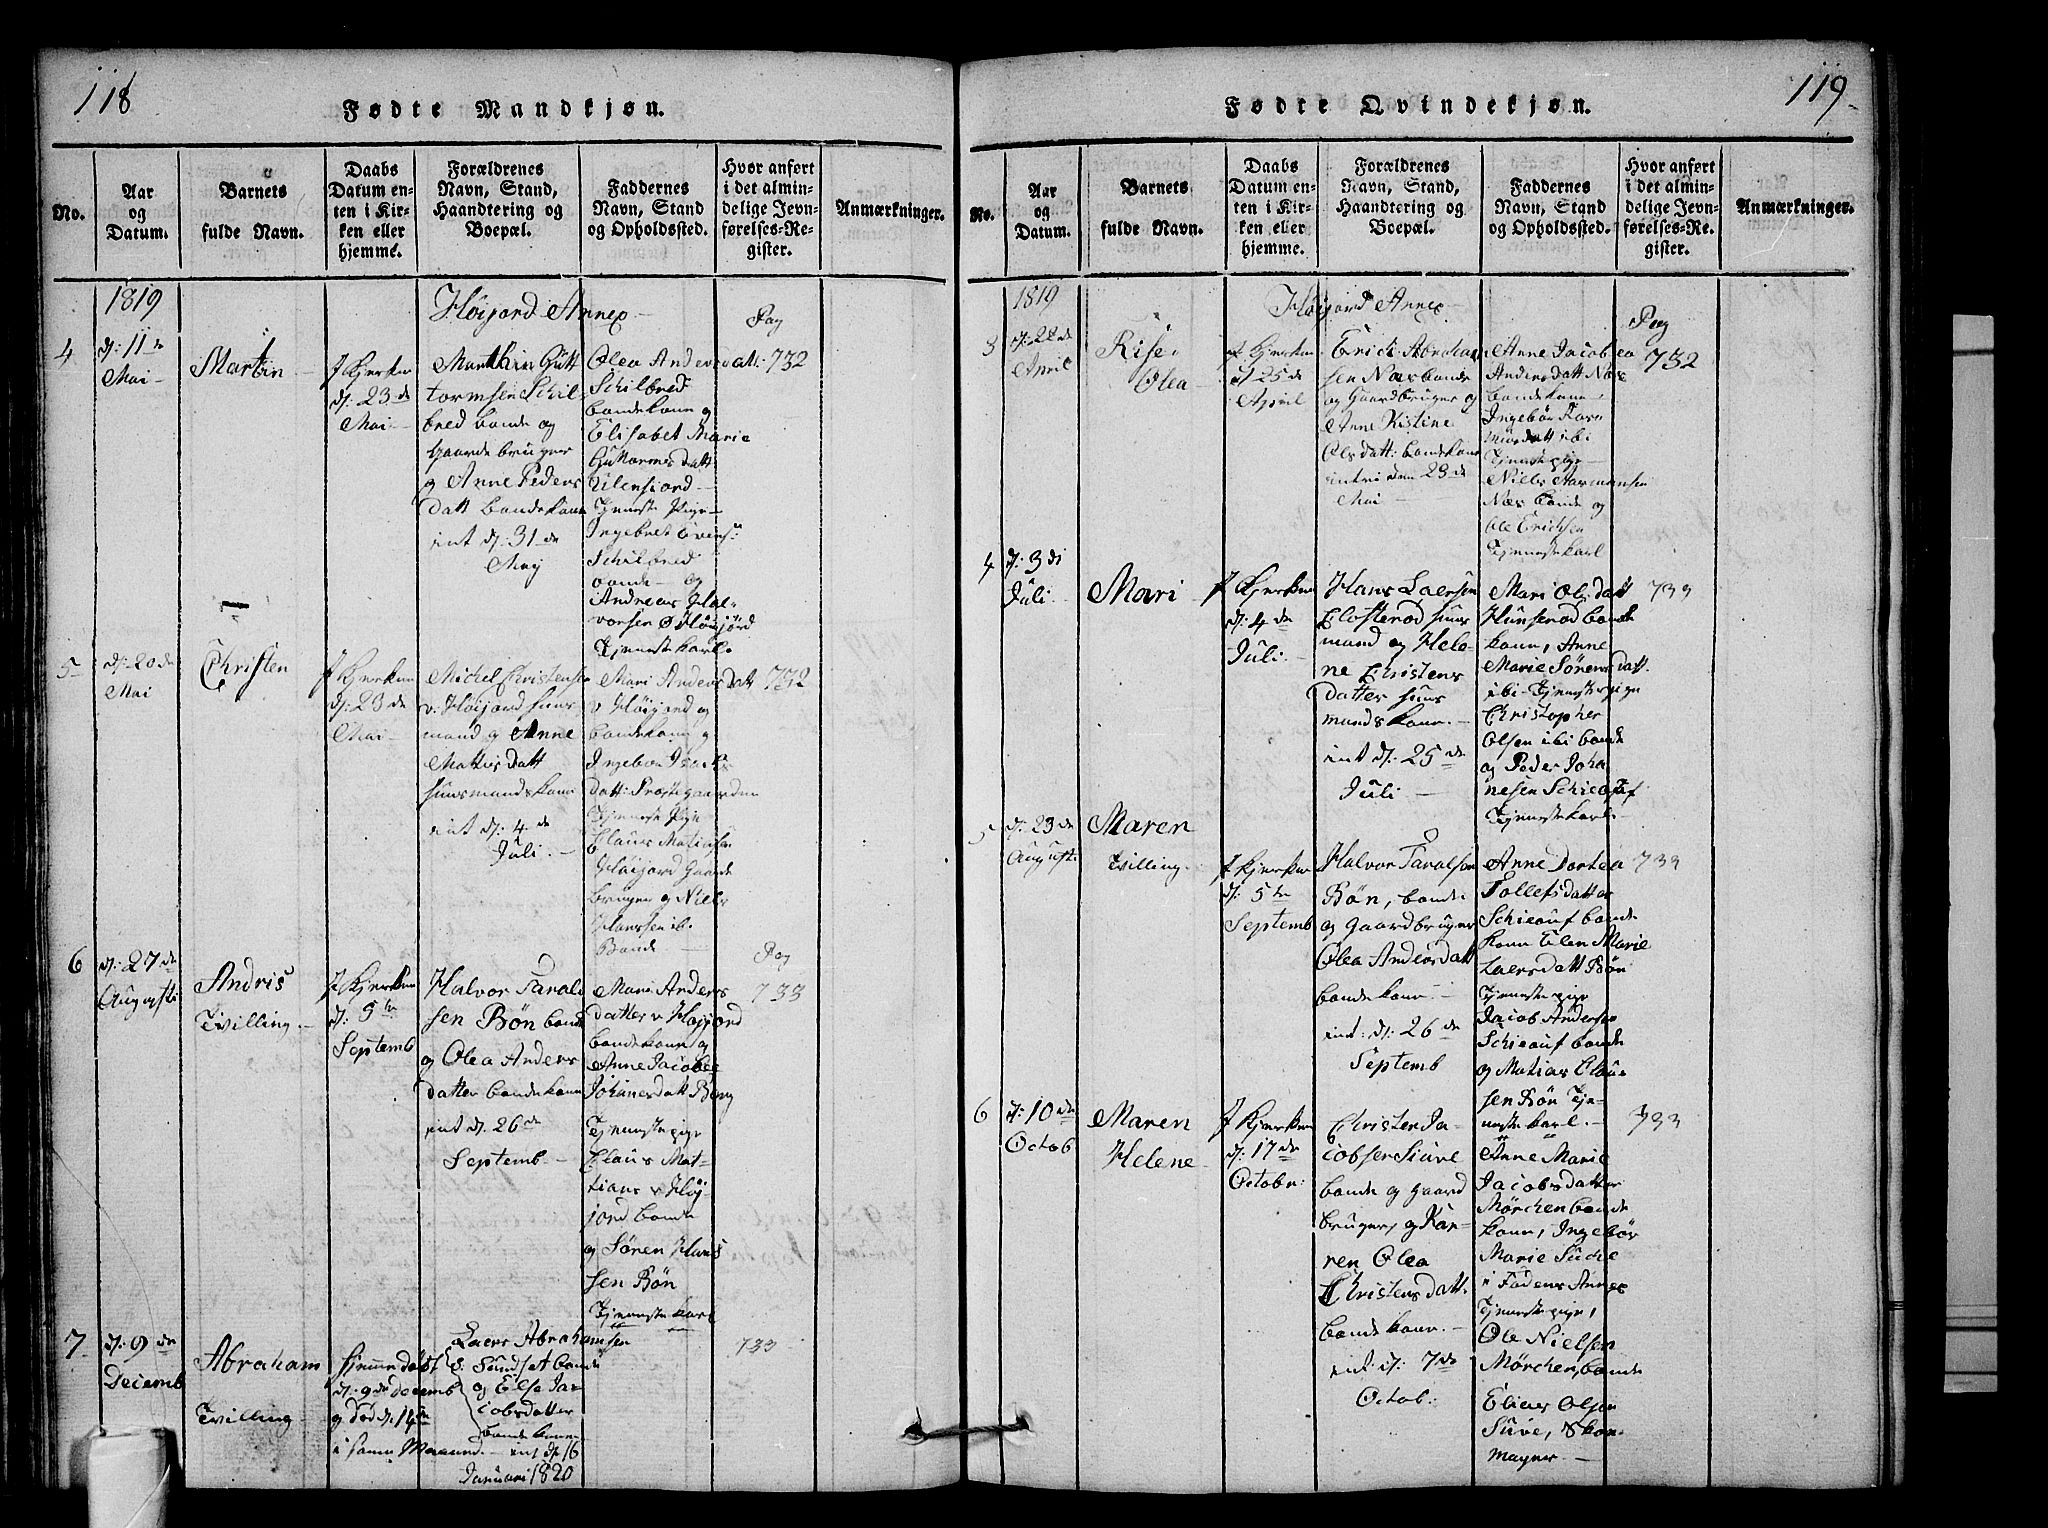 118
Fødte Mandkjøn.
No.
Aar
og
Datum.
Barnets
fulde Navn.
Daabs
Datum en-
ten i Kir-
ken eller
hjemme.
Forældrenes
Navn, Stand,
Haandtering og
Boepæl.
Faddernes
Navn, Stand
og Opholdssted.
Hvor anført
i det almin-
delige Jevn-
førelses-Re-
gister.
Anmærkninger.
1819
Høijord Annex
Pag
4
d: 11 de
Mai
Martin
I Kjerken
d: 23 de
Mai
Marthin Gutt
tormsen Schil
bred bonde og
Gaardebruger
og Anne Peders
datt bondekone
int d: 31 de
May
Olea Anders datt:
Schilbred
bondekone og
Elisabet Marie
Guttormes datt
Tjeneste Pige
Ingebret Evens:
Schilbred
bonde og
Andreas Hal-
vorsen Høijord
Tjenestekarl
732
5
d: 20 de
Mai
Christen
I Kjerken
d: 23 de
Mai
Michel Christensen
v: Høijord huus
mand og Anne
Matis datt
huusmandskone
int d: 4 de
Juli
Mari Anders datt
v Høijord og
bondekone og
Ingebor Isacks
datt: Prestegaarden
Tjeneste Pige
Claus Matiasen
Høijord Gaard
bruger og Niels
Hanssen ib.
Bonde
732
6
d: 27 de
Augusti
Andris
Tvilling
I Kjerken
d: 5 te
Septemb
Halvor Taral
sen Bøn bonde
og Olea Anders
datter bondekone
int d: 26 de
Septemb
Mari Anders
datter v Høijord
bondekone og
Anne Jacobea
Johanesdatt Berg
Tjenestepige
Claus Mat-
tians v Høj
jord bonde
og Søren Hans
sen Bøn
Tjenestekarl
Pag
733
7
d: 9 de
Decemb
Abraham
Tvilling
hjemmedøbt
d: 9 de Decemb
og død d: 14 de
i samme Maaned
Laers Abrahamsen
Sundset bonde
og Else Ja-
cobsdatter
bondekone
int d 16
Januari 1820
733
119
Fødte Qvindekjøn.
No.
Aar
og
Datum.
Barnets
fulde Navn.
Daabs
Datum en-
ten i Kir-
ken eller
hjemme.
Forældrenes
Navn, Stand,
Haandtering og
Boepæl.
Faddernes
Navn, Stand
og Opholdssted.
Hvor anført
i det almin-
delige Jevn-
førelses-Re-
gister.
Anmærkninger.
1819
Høijord Annex
Pag
3
April
Olea
I Kjerken
d 25 de
April
Erich Abraham
sen Næs bonde
og Gaardbruger og
Anne Kistine
Olsdatt: bondekone
den 23 de
Mai
Anne Jacobea
Andersdatt Næs
bondekone,
Ingebør
ibi
Tjenestepige
Niels Aarmonsen
Næs bonde og
Ole Erichsen
Tjenestekarl
732
4
d: 3 di
Juli
Mari
I Kjerken
d: 4 de
Juli
Hans Laersen
Closterød huus
mand og Hele-
ne Christens
datter huus
mandskone
int d: 25 de
Juli
Mari Olsdatt
Hunserød bonde
kone, Anne
Marie Sørens datt.
ibi Tjenestepige
Christopher
Olsen ibi bonde
og Peder Joha
nesen Schieauf
Tjenestekarl
733
5
d: 23 de
Augusti
Maren
Tvilling
I Kjerken
d: 5 te
Septemb
Halvor Taralsen
Bøn, bonde
og Gaardbruger
Olea Andersdatt
bondekone
int: d: 26 de
Septemb
Anne Dortea
Tollefsdatter
Schieauf bonde
kone Elen Marie
Laersdatt Bøn
Tjenestepige
Jacob Andersen
Schieauf bonde
og Matias Clau-
sen Bøn Tje-
nestekarl.
733
6
d: 10 de
Octob
Maren
Helene
I Kjerken
d: 17 de
Octobr:
Christen Ja-
cobsen Siuve
bonde og gaard
bruger, og Kar-
ren Olea
Christens datt.
bondekone
int. d: 7 de
Octob:
Anne Marie
Jacobsdatter
Mørchen bonde
kone, Ingebør
Marie
Tjenestepige,
Ole Nielsen
Mørchen, bonde
Elias Olsen
Suve, Skou-
mager
733